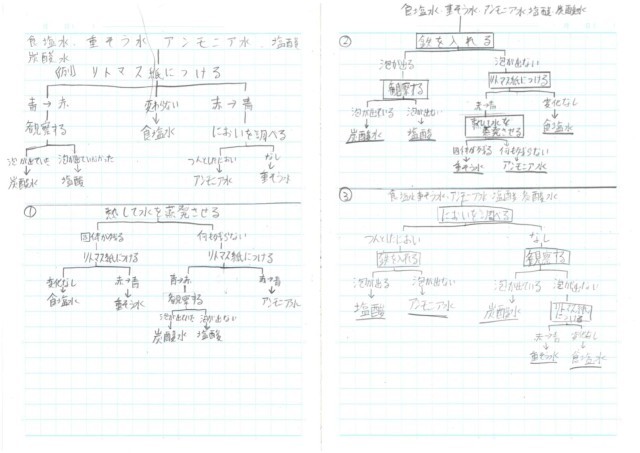 食塩水、重そう水、アンモニア水、塩酸
炭酸水
(例) リトマス紙につける
青→赤 変わらない 赤→青
観察する 食塩水 においを調べる
泡が出ていた 泡が出ていなかった つんとしたにおい なし
炭酸水 塩酸 アンモニア水 重そう水
① 熱して水を蒸発させる
固体が残る 何も残らない
リトマス紙につける リトマス紙につける
変化なし 赤→青 青→赤 赤→青
食塩水 重そう水 観察する アンモニア水
泡が出ている 泡が出ない
炭酸水 塩酸
食塩水、重そう水、アンモニア水、塩酸、炭酸水
② 鉄を入れる
泡が出る 泡が出ない
観察する リトマス紙につける
泡が出ている 泡が出ない 赤→青 変化なし
炭酸水 塩酸 熱して水を蒸発させる 食塩水
固体が残る 何も残らない
重そう水 アンモニア水
③ 食塩水、重そう水、アンモニア水、塩酸、炭酸水
においを調べる
つんとしたにおい なし
鉄を入れる 観察する
泡が出る 泡が出ない 泡が出ている 泡が出ない
塩酸 アンモニア水 炭酸水 リトマス紙につける
赤→青 変化なし
重そう水 食塩水